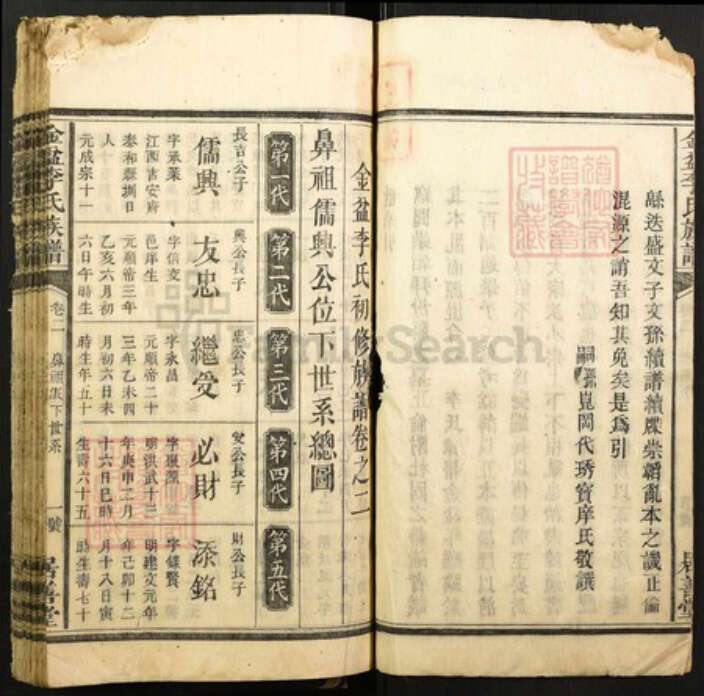 金盆李氏族譜
繇迭盛文子文孫續譜續牒崇韜亂本之譏止淪
混源之誚吾知其免矣是爲引
嗣孫崑岡代琇寶庠氏敬譔
居善堂
金盆李氏初修族譜卷之二
鼻祖儒興公位下世系總圖
第一代
第二代
第三代
第四代
第五代
長吉公子
儒興
字承業
江西吉安府
泰和鵝圳日
人
元成宗十一
興公長子
友忠
字信交
邑庠生
元順帝三年
乙亥六月初
六日午時生
忠公長子
繼受
字永昌
元順帝二十
三年乙未四
月初六日未
時生年五十
受公長子
必財
明洪武十三
年庚申二月
十六日巳時
生壽六十五
財公長子
添銘
明建文元年
年己卯十二
月十八日寅
時生壽七十
金盆李氏族譜
卷二
鼻祖位下世系
一號
居善堂
FamilySearch